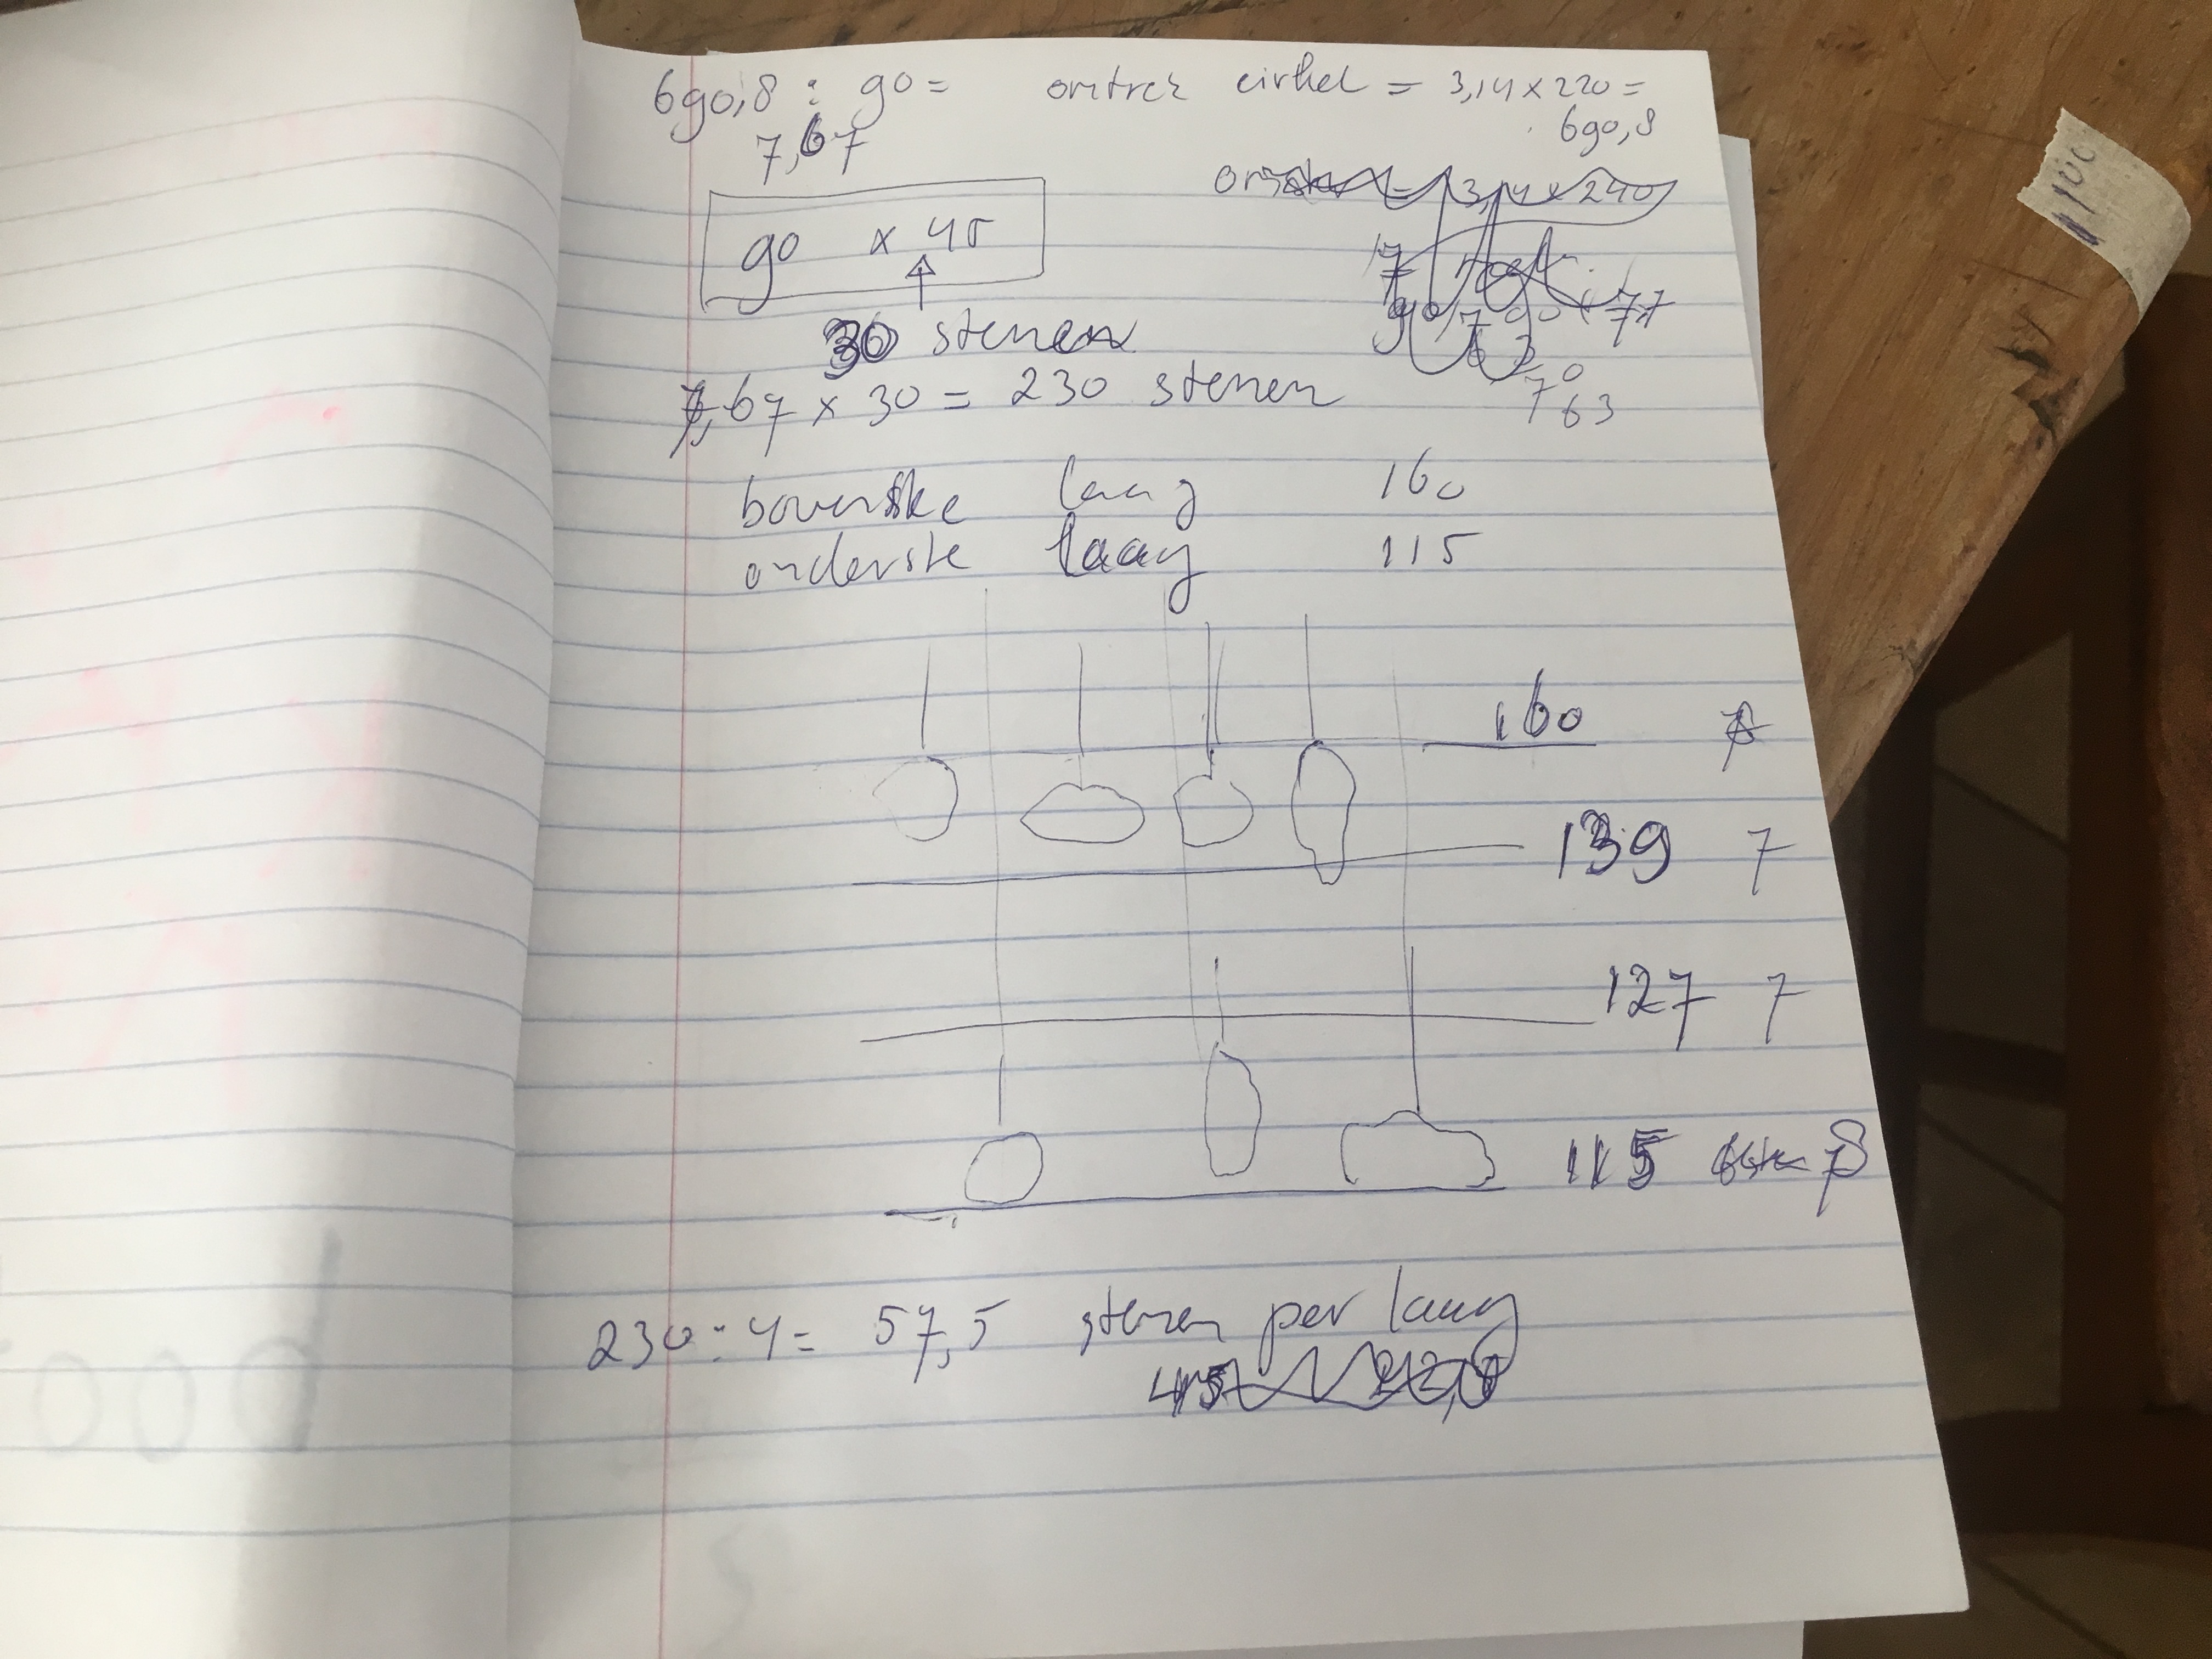 690,8 : 90 = omtrek cirkel = 3,14 x 220 =
7,67 690,8
3,14 x 240
90 x 45
30 stenen
7,67 x 30 = 230 stenen
7 63
bovenste laag 160
onderste laag 115
160
139 7
127 7
115 8
230 : 4 = 57,5 stenen per laag
1100